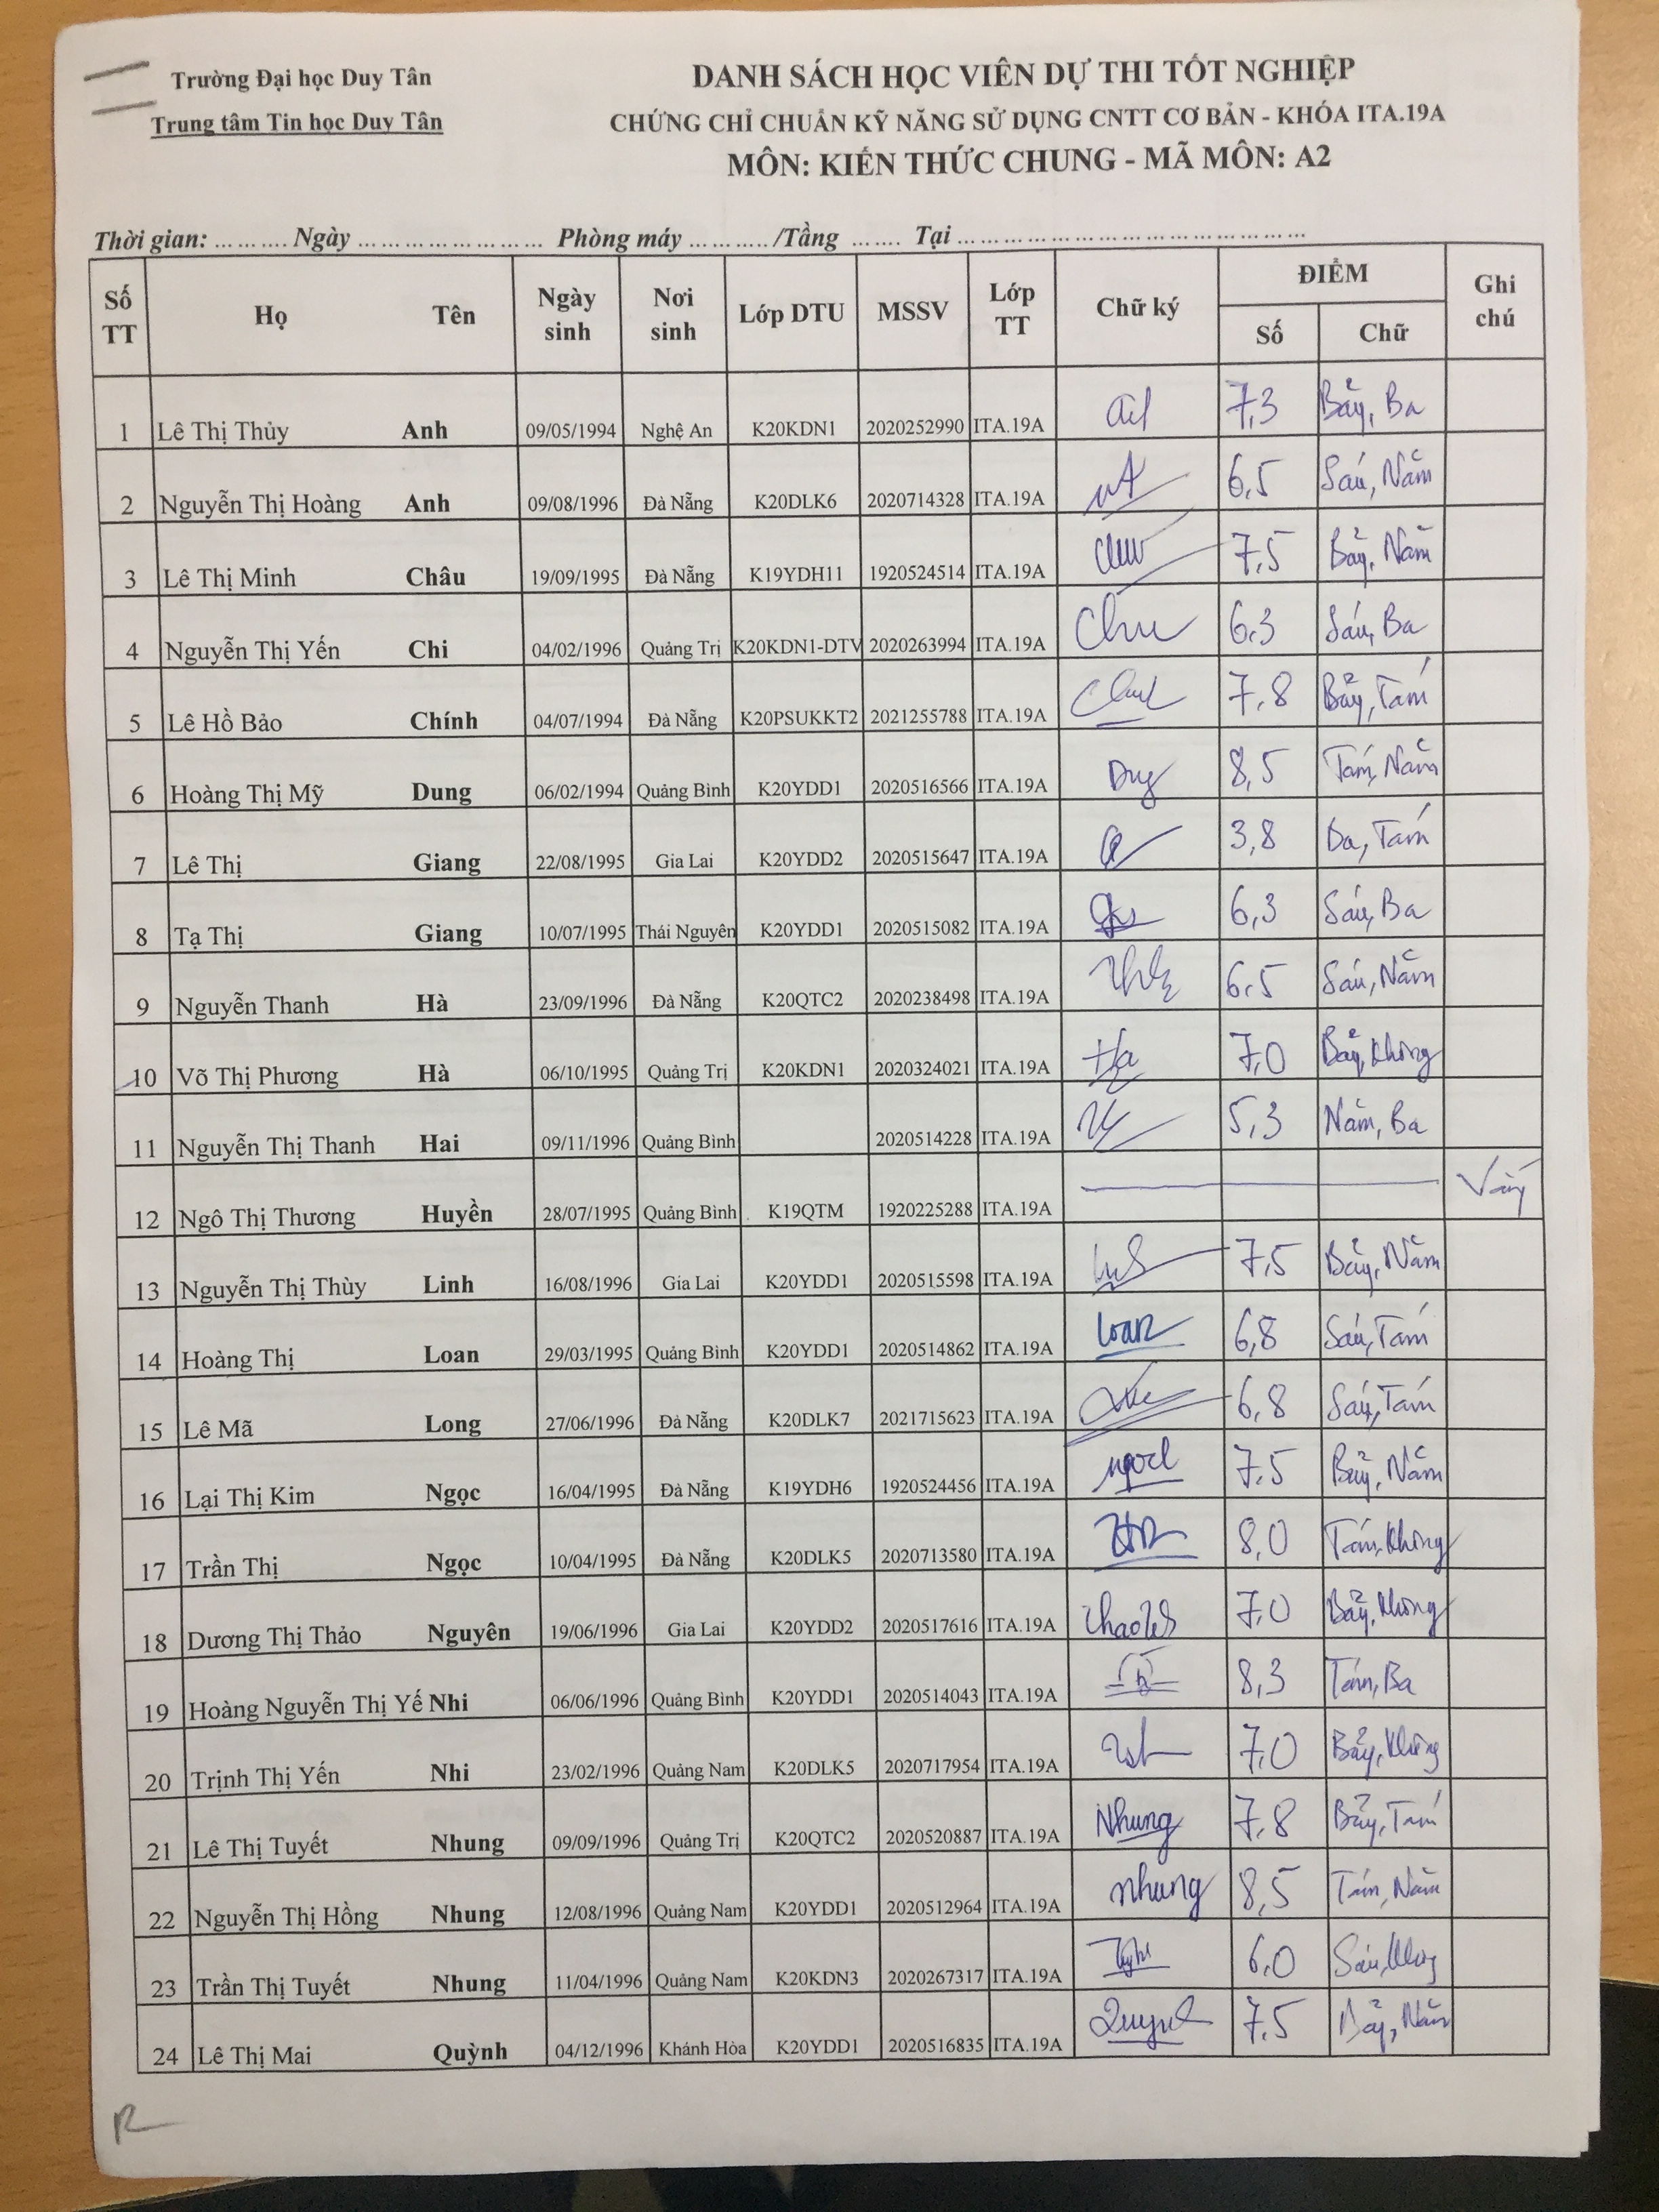 Trường Đại học Duy Tân
Trung tâm Tin học Duy Tân
DANH SÁCH HỌC VIÊN DỰ THI TỐT NGHIỆP
CHỨNG CHỈ CHUẨN KỸ NĂNG SỬ DỤNG CNTT CƠ BẢN - KHÓA ITA.19A
MÔN: KIẾN THỨC CHUNG - MÃ MÔN: A2
Thời gian: ... ... .... Ngày ... ... ... ... ... ... ... Phòng máy ... ... ..... /Tầng ... .... Tại ... ... ... ... ... ... ... ... ... ... ... ... ...
Số TT Họ Tên Ngày sinh Nơi sinh Lớp DTU MSSV Lớp TT Chữ ký ĐIỂM Số Chữ Ghi chú
1 Lê Thị Thủy Anh 09/05/1994 Nghệ An K20KDN1 2020252990 ITA.19A 7,3 Bảy, Ba
2 Nguyễn Thị Hoàng Anh 09/08/1996 Đà Nẵng K20DLK6 2020714328 ITA.19A 6,5 Sáu, Năm
3 Lê Thị Minh Châu 19/09/1995 Đà Nẵng K19YDH11 1920524514 ITA.19A 7,5 Bảy, Năm
4 Nguyễn Thị Yến Chi 04/02/1996 Quảng Trị K20KDN1-DTV 2020263994 ITA.19A 6,3 Sáu, Ba
5 Lê Hồ Bảo Chính 04/07/1994 Đà Nẵng K20PSUKKT2 2021255788 ITA.19A 7,8 Bảy, Tám
6 Hoàng Thị Mỹ Dung 06/02/1994 Quảng Bình K20YDD1 2020516566 ITA.19A 8,5 Tám, Năm
7 Lê Thị Giang 22/08/1995 Gia Lai K20YDD2 2020515647 ITA.19A 3,8 Ba, Tám
8 Tạ Thị Giang 10/07/1995 Thái Nguyên K20YDD1 2020515082 ITA.19A 6,3 Sáu, Ba
9 Nguyễn Thanh Hà 23/09/1996 Đà Nẵng K20QTC2 2020238498 ITA.19A 6,5 Sáu, Năm
10 Võ Thị Phương Hà 06/10/1995 Quảng Trị K20KDN1 2020324021 ITA.19A Ha 7,0 Bảy, Không
11 Nguyễn Thị Thanh Hai 09/11/1996 Quảng Bình 2020514228 ITA.19A 5,3 Năm, Ba
12 Ngô Thị Thương Huyền 28/07/1995 Quảng Bình K19QTM 1920225288 ITA.19A Vắng
13 Nguyễn Thị Thùy Linh 16/08/1996 Gia Lai K20YDD1 2020515598 ITA.19A 7,5 Bảy, Năm
14 Hoàng Thị Loan 29/03/1995 Quảng Bình K20YDD1 2020514862 ITA.19A Loan 6,8 Sáu, Tám
15 Lê Mã Long 27/06/1996 Đà Nẵng K20DLK7 2021715623 ITA.19A 6,8 Sáu, Tám
16 Lại Thị Kim Ngọc 16/04/1995 Đà Nẵng K19YDH6 1920524456 ITA.19A ngọc 7,5 Bảy, Năm
17 Trần Thị Ngọc 10/04/1995 Đà Nẵng K20DLK5 2020713580 ITA.19A 8,0 Tám, Không
18 Dương Thị Thảo Nguyên 19/06/1996 Gia Lai K20YDD2 2020517616 ITA.19A 7,0 Bảy, Không
19 Hoàng Nguyễn Thị Yế Nhi 06/06/1996 Quảng Bình K20YDD1 2020514043 ITA.19A 8,3 Tám, Ba
20 Trịnh Thị Yến Nhi 23/02/1996 Quảng Nam K20DLK5 2020717954 ITA.19A 7,0 Bảy, Không
21 Lê Thị Tuyết Nhung 09/09/1996 Quảng Trị K20QTC2 2020520887 ITA.19A Nhung 7,8 Bảy, Tám
22 Nguyễn Thị Hồng Nhung 12/08/1996 Quảng Nam K20YDD1 2020512964 ITA.19A nhung 8,5 Tám, Năm
23 Trần Thị Tuyết Nhung 11/04/1996 Quảng Nam K20KDN3 2020267317 ITA.19A 6,0 Sáu, Không
24 Lê Thị Mai Quỳnh 04/12/1996 Khánh Hòa K20YDD1 2020516835 ITA.19A Quỳnh 7,5 Bảy, Năm